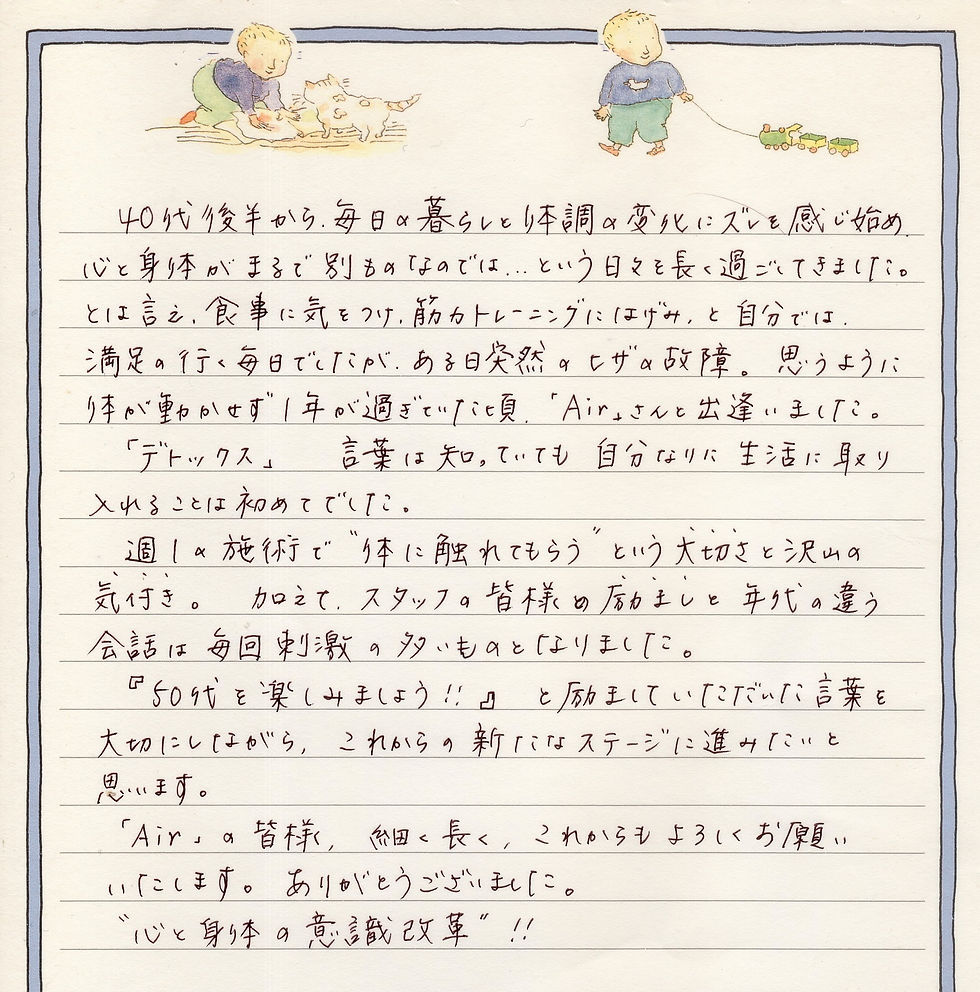 40代後半から、毎日の暮らしと体調の変化にズレを感じ始め、
心と身体がまるで別ものなのでは…という日々を長く過ごしてきました。
とは言え、食事に気をつけ、筋力トレーニングにはげみ、と自分では、
満足の行く毎日でしたが、ある日突然のヒザの故障。思うように
体が動かせず1年が過ぎていた頃、「Air」さんと出逢いました。
「デトックス」 言葉は知っていても 自分なりに生活に取り
入れることは初めてでした。
週1の施術で“体に触れてもらう”という大切さと沢山の
気付き。 加えて、スタッフの皆様の励ましと年代の違う
会話は毎回刺激の多いものとなりました。
『50代を楽しみましょう!!』 と励ましていただいた言葉を
大切にしながら、これからの新たなステージに進みたいと
思います。
「Air」の皆様、細く長く、これからもよろしくお願い
いたします。ありがとうございました。
“心と身体の意識改革”!!